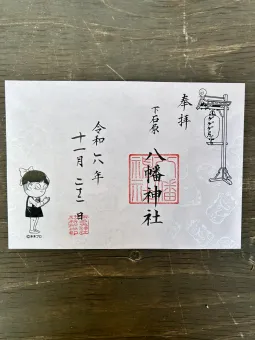 奉拝
下石原
八幡神社
令和六年
十一月二十二日